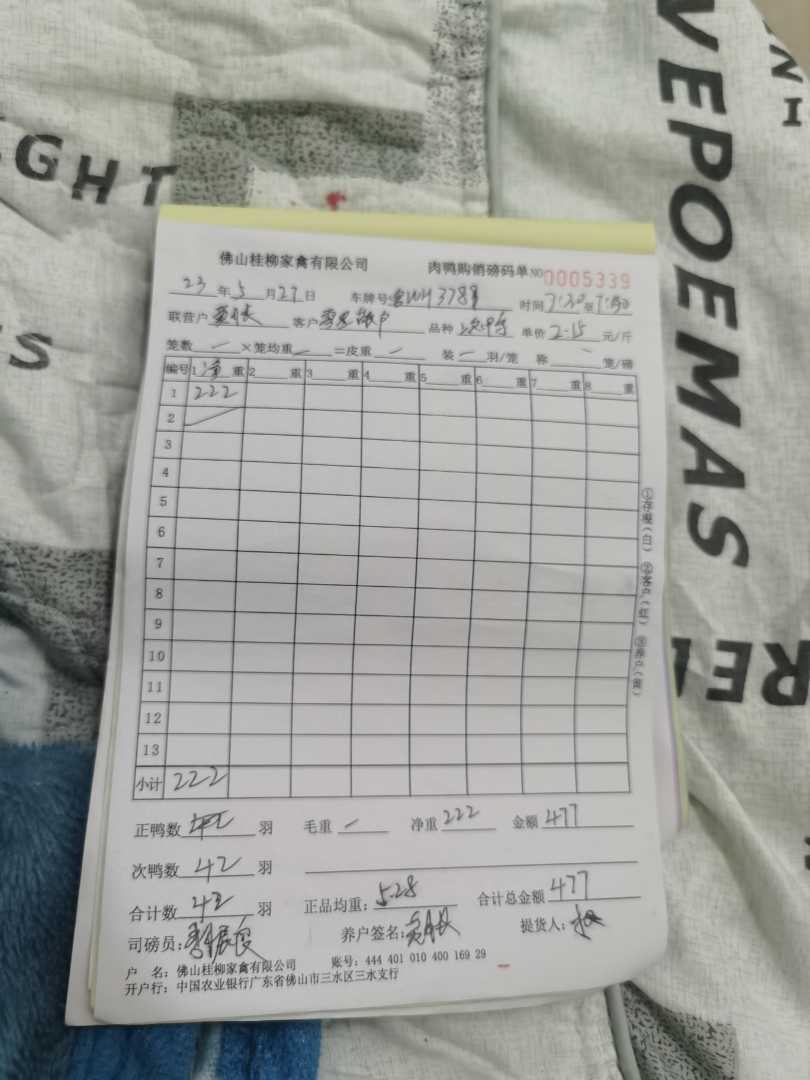 VEPOEMAS
GHT
S
REI
佛山桂柳家禽有限公司 肉鸭购销磅码单 NO 0005339
23年5月27日 车牌号 时间7:30至7:50
联营户 客户 品种 单价2.15元/斤
笼数 一 ×笼均重 一 =皮重 一 装 一 羽/笼 称 一 笼/磅
编号 1 净 重 2 重 3 重 4 重 5 重 6 重 7 重 8 重
1 222
2
3
4
5
6
7
8
9
10
11
12
13
小计 222
①存根(白) ②客户(红) ③养户(黄)
正鸭数 羽 毛重 一 净重 222 金额 477
次鸭数 42 羽
合计数 42 羽 正品均重: 5.28 合计总金额 477
司磅员: 养户签名: 提货人:
户 名: 佛山桂柳家禽有限公司 账号: 444 401 010 400 169 29
开户行: 中国农业银行广东省佛山市三水区三水支行